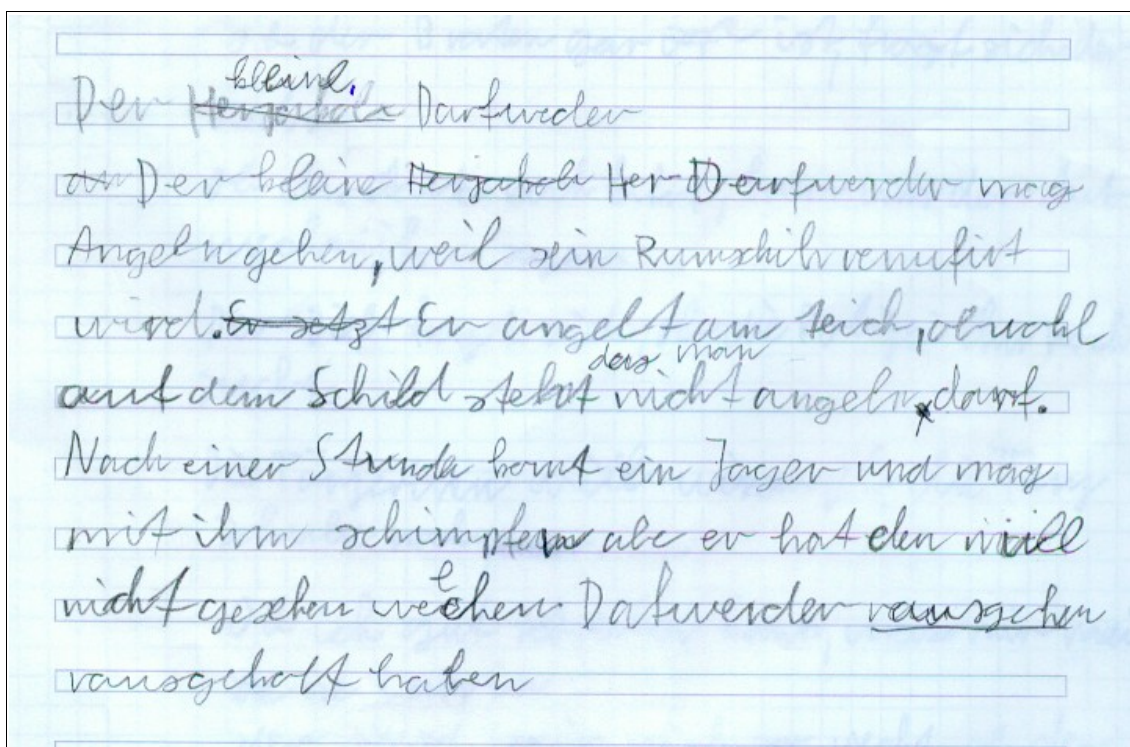 Der kleine Darfweder
Der kleine Her Darfwerder mag
Angeln gehen, weil sein
wird. Er angelt am teich, obwohl
auf dem Schild steht das man nicht angeln darf.
Nach einer Stunde komt ein Jager und mag
mit ihm schimpfen abe er hat den müll
nicht gesehen wechen Dafwerder rausgehen
rausgeholt haben